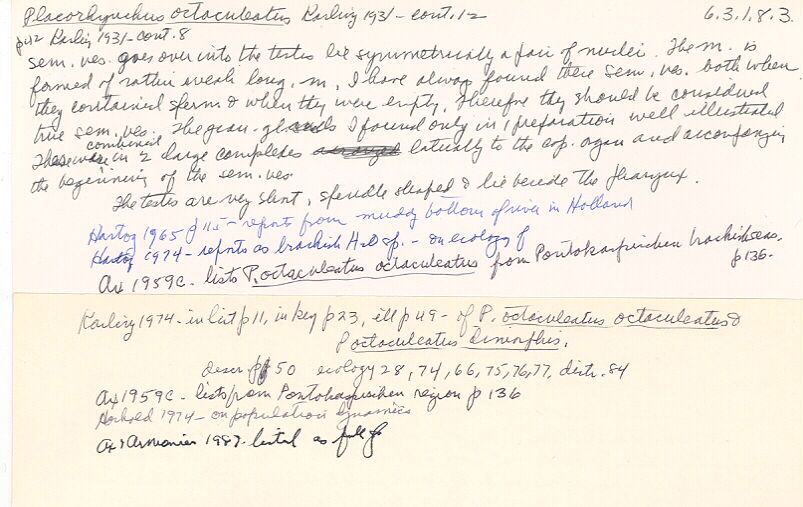 Placorhynchus octaculeatus Karling 1931 - cont. 12 6.3.1.8.3.
p 42 Karling 1931 - cont. 8
sem. ves. goes over into the testes lie symmetrically a pair of nuclei. The m. is
formed of rather weak long. m. I have always found these sem. ves. both when
they contained sperm & when they were empty, therefore they should be considered
true sem. ves. The gran. glands I found only in 1 preparation well illustrated
These were combined in 2 large complexes laterally to the cop. organ and accompanying
the beginning of the sem. ves.
The testes are very short, spindle shaped & lie beside the pharynx.
Hartog 1965 p 115 - reports from muddy bottom of river in Holland
Hartog 1974 - reports as brackish H2O sp. - on ecology p
Ax 1959c - lists P. octaculeatus octaculeatus from Pontokaspischen brackish seas. p 136.
Karling 1974 - in list p 11, in key p 23, ill p 49 - of P. octaculeatus octaculeatus &
P octaculeatus dimorphis.
descr p 50 ecology 28, 74, 66, 75, 76, 77, distr. 84
Ax 1959c - lists from Pontokaspischen region p 136
1974 - on population dynamics
Ax & Armonies 1987 - listed as